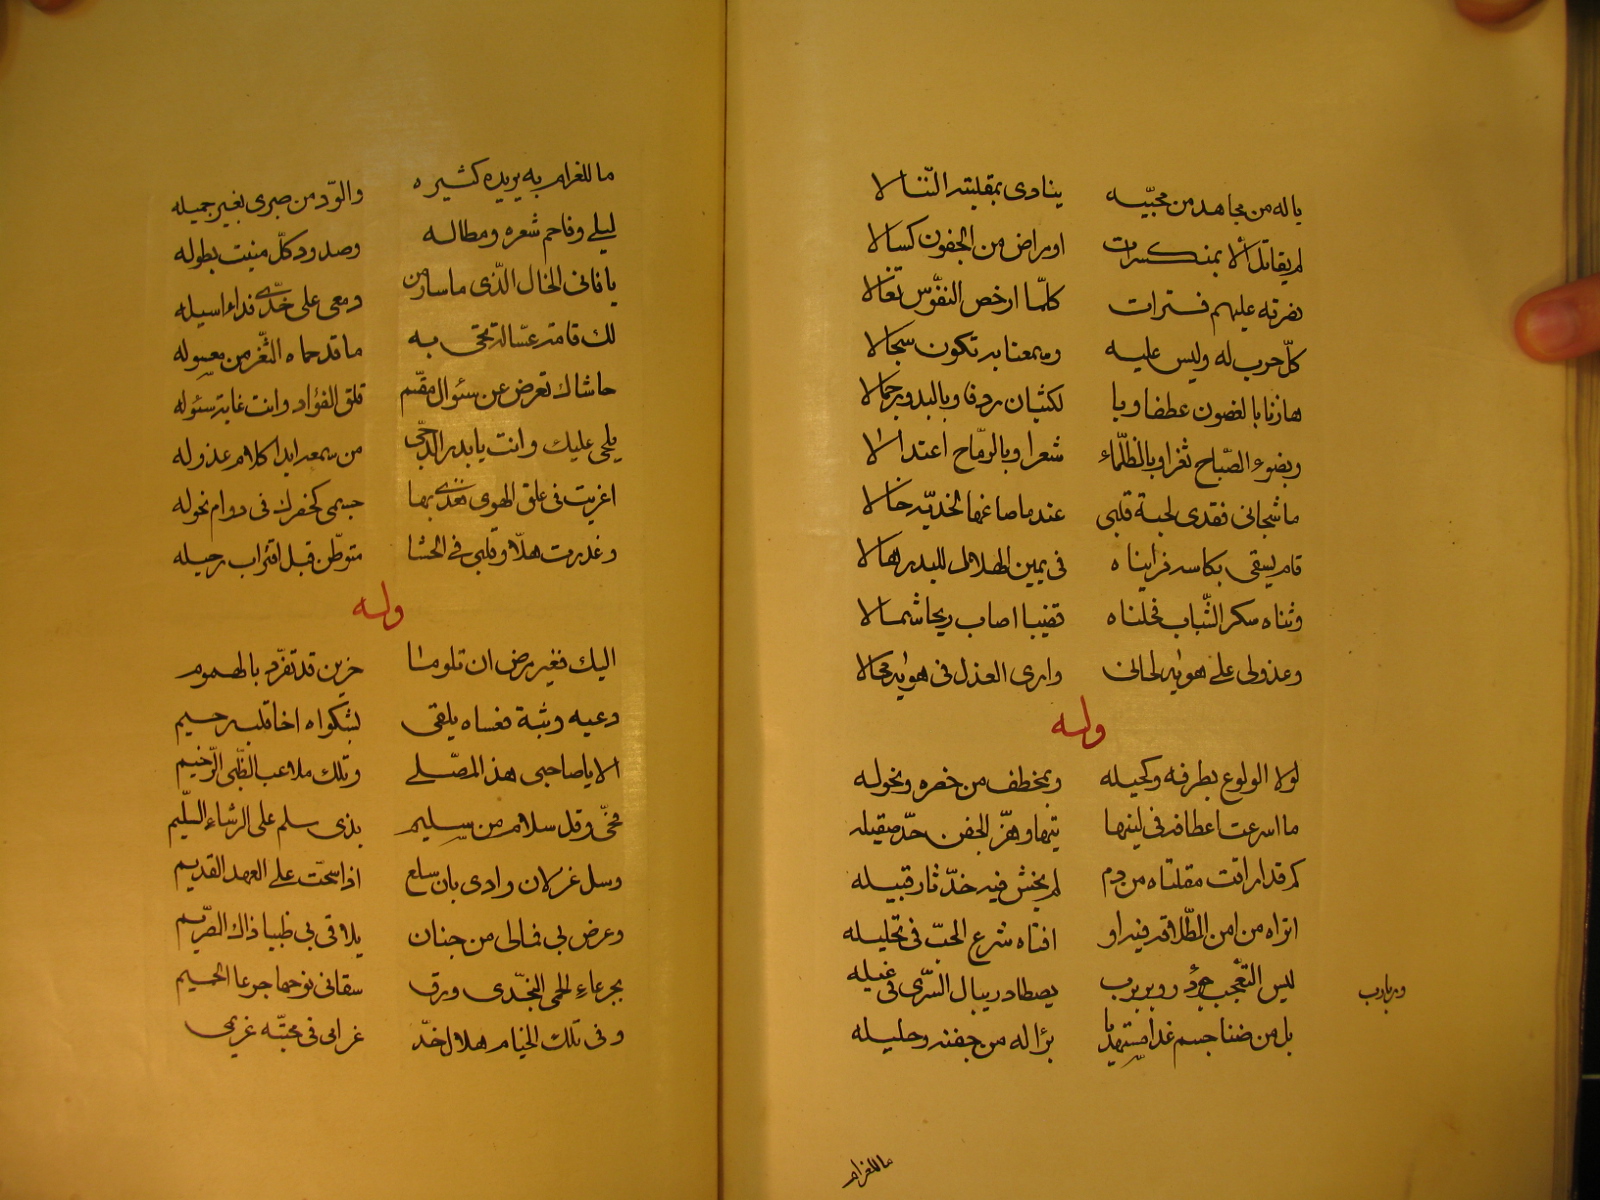 ياله من مجاهد من محبّيه ينادى بمقلبته النّنالا
لم يقاتل ألا بمنكسرات او مراض من الجفون كسالا
نصرته عليهم فترات كلّما ارخص النفوس تغالا
كلّ حرب له وليس عليه وبمعنا به تكون سجالا
هازئا بالغصون عطفا وبا لكثبان ردفا وبالبدور جمالا
وبضوء الصّباح ثغرا وبالظلّماء شعرا وبالرّماح اعتدالا
ما شجانى فقدى لحبة قلبى عندما صاغها لخديّه خالا
قام يسقى بكاسه فراينا ه فى يمين الهلال للبدر هالا
وثناه سكر الشّباب فخلناه قضيبا اصاب ريحا شمالا
وعذولى على هويه لحانى وارى العذل فى هويه محالا
وله
لولا الولوع بطرفه وكحيله وبمخطف من خصره ونحوله
ما اسرعت اعطافه فى لينها تيها وهزّ الجفن حدّ صقيله
كم قد اراقت مقلتاه من دم لم يخش فيه خدّ ثار قبيله
اتراه من امن المطّلابة فيه او افتاه شرع الحبّ فى تحليله
ليس التعّجب جؤذر وبربرب يصطاد ريبال السّرى فى غيله
وبربرب
بل من ضنا جسم غدا مستهديا برٔا له من جفنه وحليله
ما للغرام
ما للغرام به يزيده كثيره والوّد من صبرى بغير جميله
ليلى وفاحم شعره ومطاله وصدود كلّ منيت بطوله
يا فانى الخال الذّى ماسار من دمعى على خدّى فداء اسيله
لك قامة عسّالة تحمى به ما قد حماه الثّغر من معسوله
حاشاك تعرض عن سئوال مقسّم قلق الفؤاد وانت غاية سئوله
يلحى عليك وانت يا بدر الدّجى من سمعه ابدا كلام عذوله
اغريت فى علق الهوى بها جسمى كخصرك فى دوام نحوله
وغدرت هلّا وقلبى فى الحشا متوطّن قبل اقتراب رحيله
وله
اليك فغير مرض ان تلوما حزين قد تفرّد بالهموم
دعيه وشبة فعساه يلقى لشكواه اخا قلب رحيم
الا يا صاحبى هذا المصلّى وتلك ملاعب الظّبى الرّخيم
فحىّ وقل سلام من سليم بذى سلم على الرشاء السّليم
وسل غزلان وادى بان سلع اذا سحّت على العهد القديم
وعرض بى فمالى من جنان يلاقى بى ظبيا ذاك الصّريم
بجرعاءِ الحمى النجّدى ورق سقانى نوحها جرعا الحميم
وفى تلك الخيام هلال خدّ غرامى فى محبّته غريمى